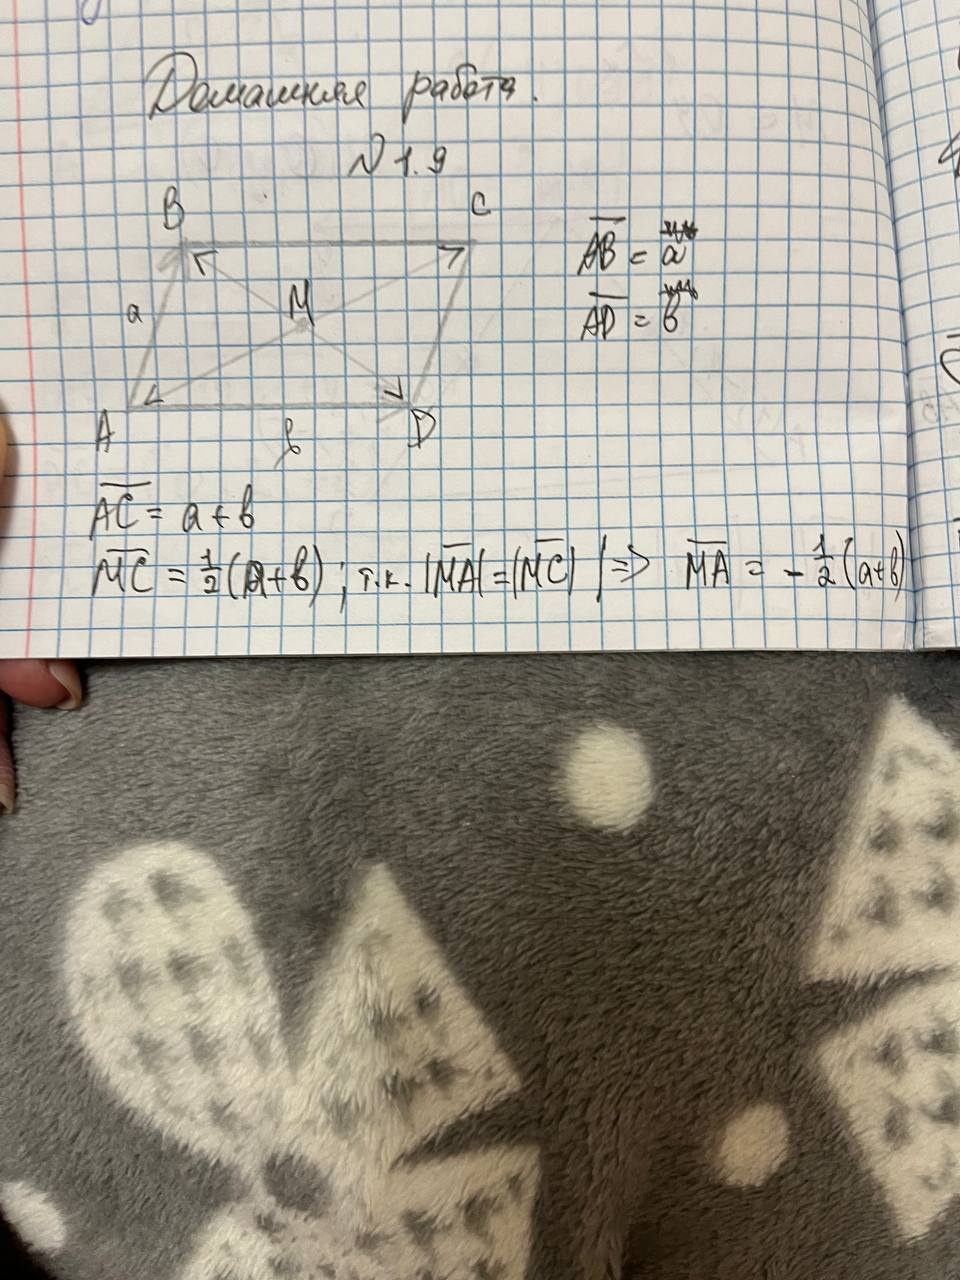 Домашняя работа.
N 1.9
B C
a M
A в D
A̅B̅ = a
A̅D̅ = в
A̅C̅ = a + в
M̅C̅ = 1/2 (a+в) ; т.к. |M̅A̅| = |M̅C̅| | => M̅A̅ = - 1/2 (a+в)